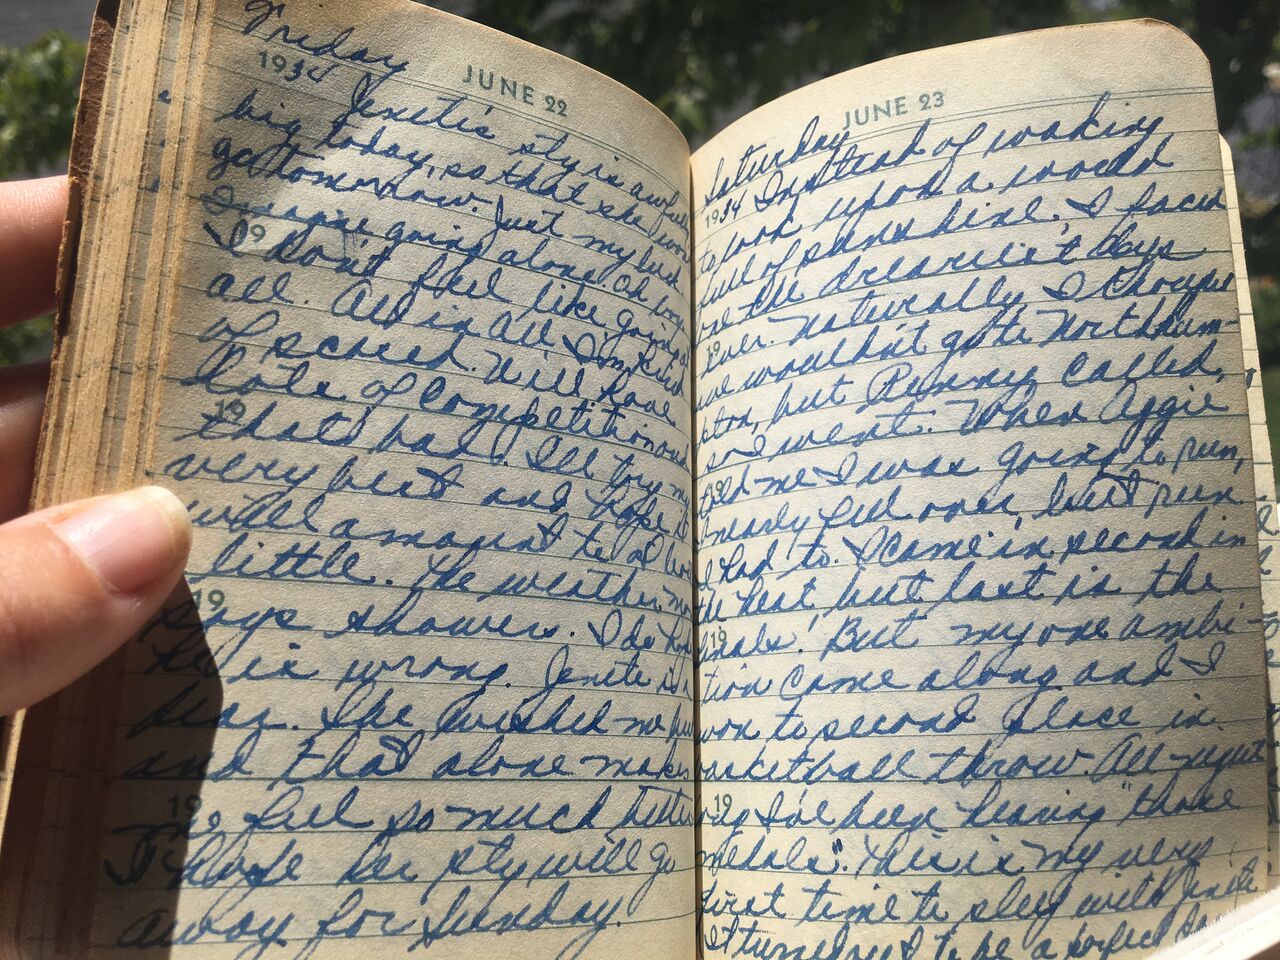 Friday
JUNE 22
1934 Jenete's sty is awfully
big today, so that she won't
go tomorrow. Just my luck
Imagine going alone. Oh boy
19 I don't feel like going at
all. All in all I'm kinda
of scared. Will have
lots of Competition and
19 that's bad. I'll try my
very best and hope it
will amount to at least
little. The weather man
19 says showers. I do hope
he is wrong. Jenete is a
dear. She wished me luck
and that alone makes
19 me feel so much better
I hope her sty will go
away for Sunday.
JUNE 23
Saturday
1934 Instead of waking
to look upon a world
full of sunshine. I faced
one the dreariest days
19 ever. Naturally I thought
we wouldn't go to Northam-
pton, but Penny called,
so I went. When Aggie
19 told me I was going to run,
I nearly fell over, but run
I had to. I came in second in
the heat, but last in the
19 finals! But my one ambi-
tion came along and I
won to second place in
basketball throw. All night
19 long I've been hearing "those
medals". This is my very
first time to sleep with Jenete
It turned out to be a perfect